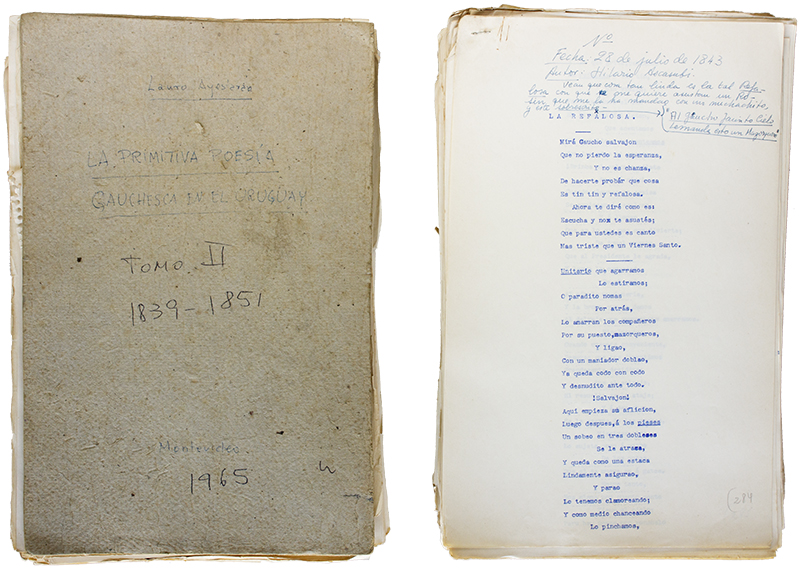 Lauro Ayestarán
LA PRIMITIVA POESÍA
GAUCHESCA EN EL URUGUAY
TOMO II
1839-1851
Montevideo
1965
Nº
Fecha, 28 de julio de 1843
Autor: Hilario Ascasubi.
Vean que con tan linda es la tal Refa-
losa con que me quiere asustar un Ro-
sín que me la ha mandao con un muchachito,
y este sobrescrito-
"Al gaucho Jacinto Cielo
LA REFALOSA.
Mirá Gaucho salvajon
Que no pierdo la esperanza,
Y no es chanza,
De hacerte probár que cosa
Es tin tin y refalosa.
Ahora te diré como es:
Escucha y nox te asustés;
Que para ustedes es canto
Mas triste que un Viernes Santo.
Unitario que agarramos
Lo estiramos;
O paradito nomas
Por atrás,
Lo amarran los compañeros
Por su puesto,mazorqueros,
Y ligao,
Con un maniador doblao,
Ya queda codo con codo
Y desnudito ante todo.
!Salvajon!
Aqui empieza su aflicion,
Luego despues,á los pieses
Un sobeo en tres dobleses
Se le atraca,
Y queda como una estaca
Lindamente asigurao,
Y parao
Lo tenemos clamoreando;
Y como medio chanceando
Lo pinchamos,
(214